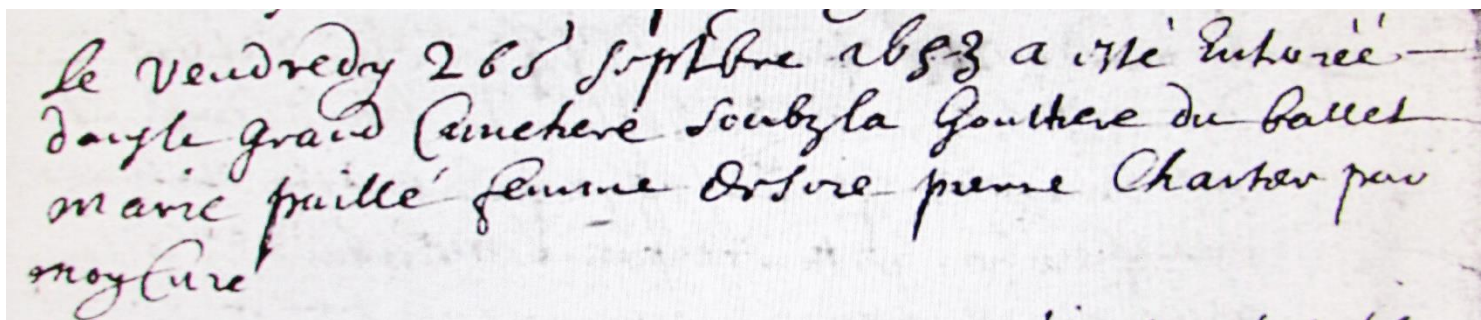 le vendredy 26e septbre 1653 a esté Enterrée
dans le grand Cimetiere soubz la gouttiere du ballet
marie paillé femme de pierre Charter par
moy Curé